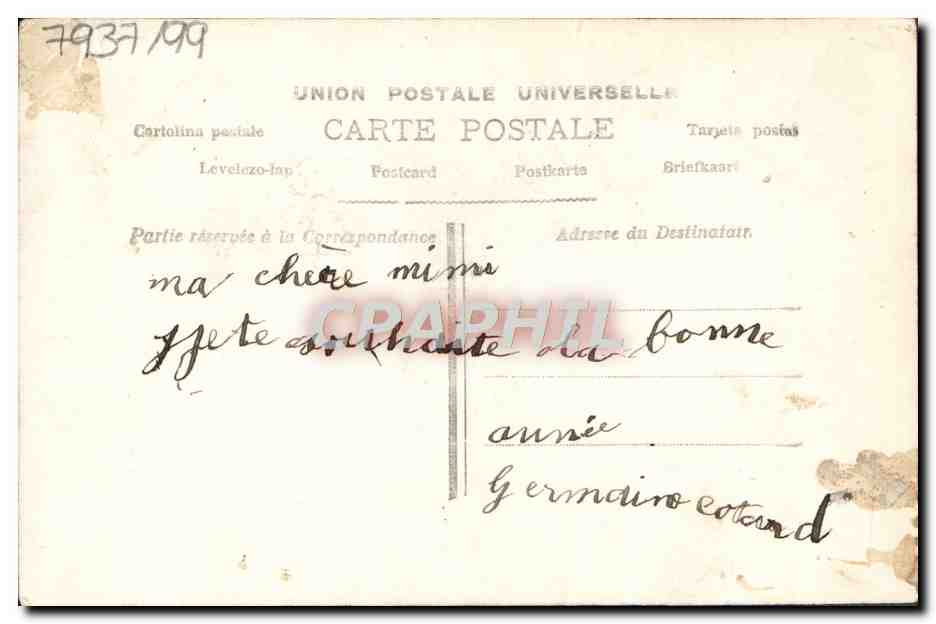 7937/99
UNION POSTALE UNIVERSELLE
CARTE POSTALE
Cartolina postale Tarjeta postal
Levelezo-lap Postcard Postkarte Briefkaart
Partie réservée à la Correspondance Adresse du Destinataire
ma chère mimi
CPAPHIL
jjete souhaite ala bonne
année
Germaine cotard